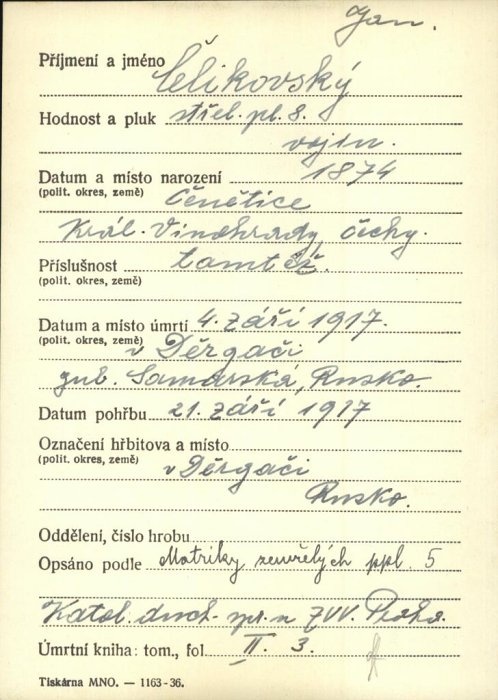 Jan.
Příjmení a jméno Čelikovský
Hodnost a pluk střel. pl. 8.
vojín.
Datum a místo narození 1874
(polit. okres, země) Čenětice
Král. Vinohrady, Čechy.
Příslušnost tamtéž.
(polit. okres, země)
Datum a místo úmrtí 4. září 1917.
(polit. okres, země) v Děrgači
gub. Samarská, Rusko.
Datum pohřbu 21. září 1917
Označení hřbitova a místo
(polit. okres, země) v Děrgači
Rusko.
Oddělení, číslo hrobu
Opsáno podle Matriky zemřelých ppl. 5
Katol. duch. spr. ZVV. Praha.
Úmrtní kniha: tom., fol. II. 3.
Tiskárna MNO. — 1163-36.